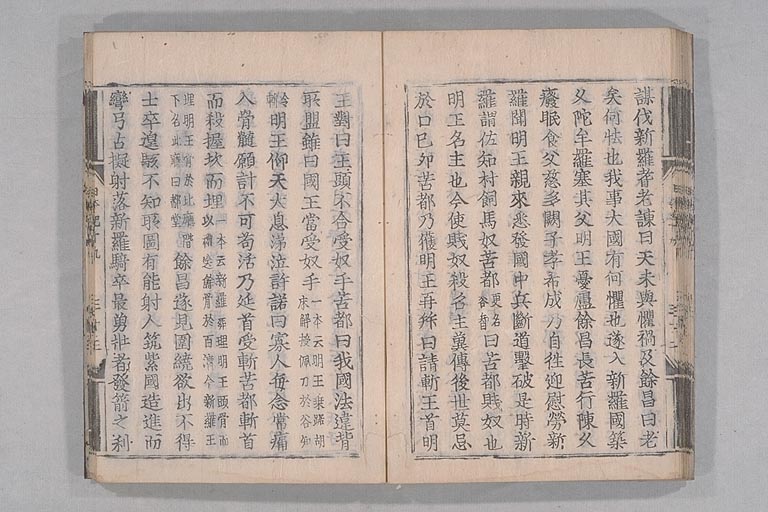 謀伐新羅耆老諫曰天未與懼禍及餘昌曰老
矣何怯也我事大國有何懼也遂入新羅國築
久陀牟羅塞其父明王憂慮餘昌長苦行陣久
癈眠食父慈多闕子孝希成乃自往迎慰勞新
羅聞明王親來悉發國中兵斷道擊破是時新
羅謂佐知村飼馬奴苦都更名谷智曰苦都賤奴也
明王名主也今使賤奴殺名主冀傳後世莫忌
於口已卯苦都乃獲明王再拜曰請斬王首明
王對曰王頭不合受奴手苦都曰我國法違背
所盟雖曰國王當受奴手一本云明王乘踞胡床解授佩刀於谷知
令斬明王仰天大息涕泣許諾曰寡人每念常痛
入骨髓願計不可苟活乃延首受斬苦都斬首
而殺掘坎而埋一本云新羅葬理明王頭骨而以禮送餘骨於百濟今新羅王
埋明王骨於北廳階下名此廳曰都堂餘昌遂見圍繞欲出不得
士卒遑駭不知所圖有能射人筑紫國造進而
彎弓占擬射落新羅騎卒最勇壯者發箭之利